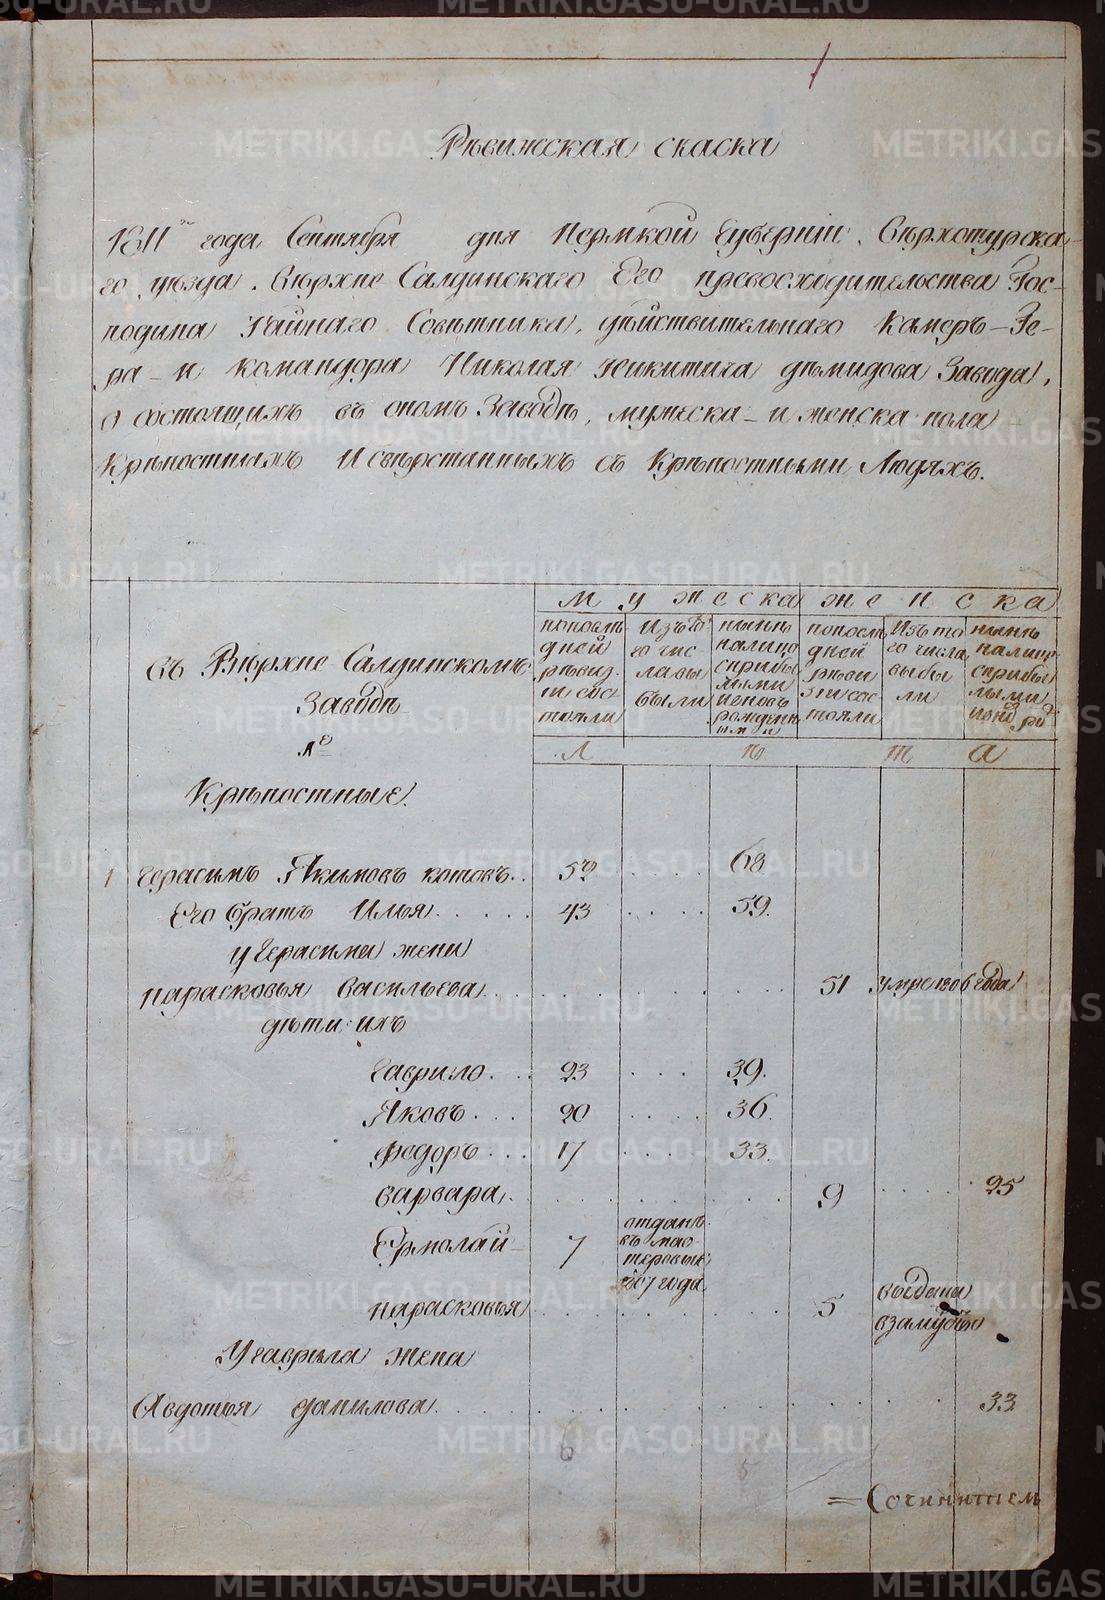 Рѣвижская скаска
1811 года Сентября дня Пермкой Губерніи. Вѣрхотурска-
го уѣзда. Вѣрхне Салдинскаго Его превосходительства Гос-
подина Тайнаго Совѣтника, дѣйствительнаго Камеръ-Ге-
ра- и командора Николая Никитича дѣмидова Завода,
О состоящихъ въ ономъ Заводѣ, мужеска- и женска пола
Крѣпостныхъ И свѣрстанныхъ съ Крѣпостными Людяхъ.
мужеска женска
Въ Вѣрхне Салдинскомъ
Заводѣ
№
попослѣ-
дней
рѣвиз.
ІИ сос
тояли
Изъ то
го чис-
ла вы
были
нынѣ
налицо
сприбы
лыми
ИЕновъ
рожденн
ыми
попослѣ
дней
рѣви
зіи сос
тояли
Изъ то
го числа
выбы
ли
нынѣ
налицо
сприбы
лыми
лѣта
Крѣпостные.
1 Герасимъ Якимовъ котовъ.. 52 .... 68
Его братъ Илья..... 43 .... 59.
у Герасима жена
парасковья Васильева. 51 умре 1806 года
дѣти ихъ
Гаврило. ... 23 .... 39.
Яковъ. ... 20 .... 36
Федоръ... 17 .... 33.
варвара. 9 .... 25
Ермолай- 7 отданъ
въ мас-
теровыя
1807 года
парасковья 5 выдана
взамужъ
У гаврила жена
Авдотья данилова. 33
6
5
=Сочинител
METRIKI.GASO-URAL.RU